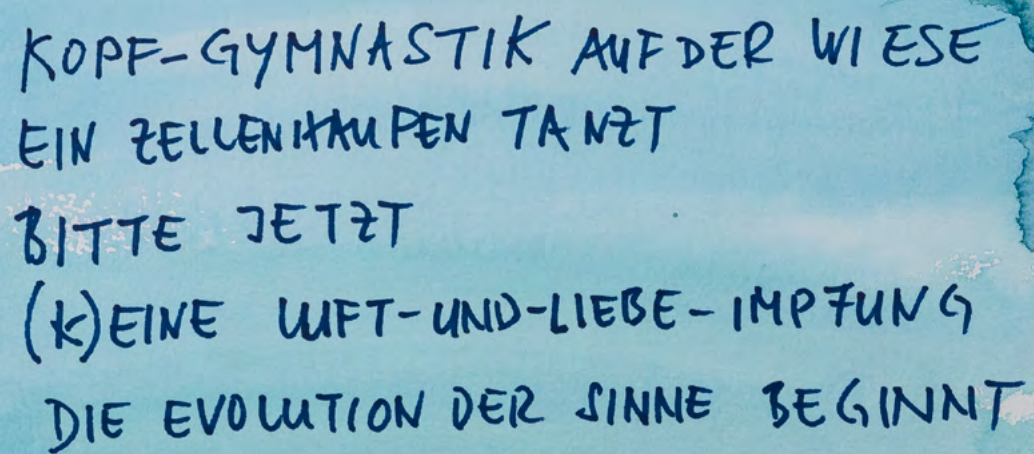 KOPF-GYMNASTIK AUF DER WIESE
EIN ZELLENHAUFEN TANZT
BITTE JETZT
(k)EINE LUFT-UND-LIEBE-IMPFUNG
DIE EVOLUTION DER SINNE BEGINNT